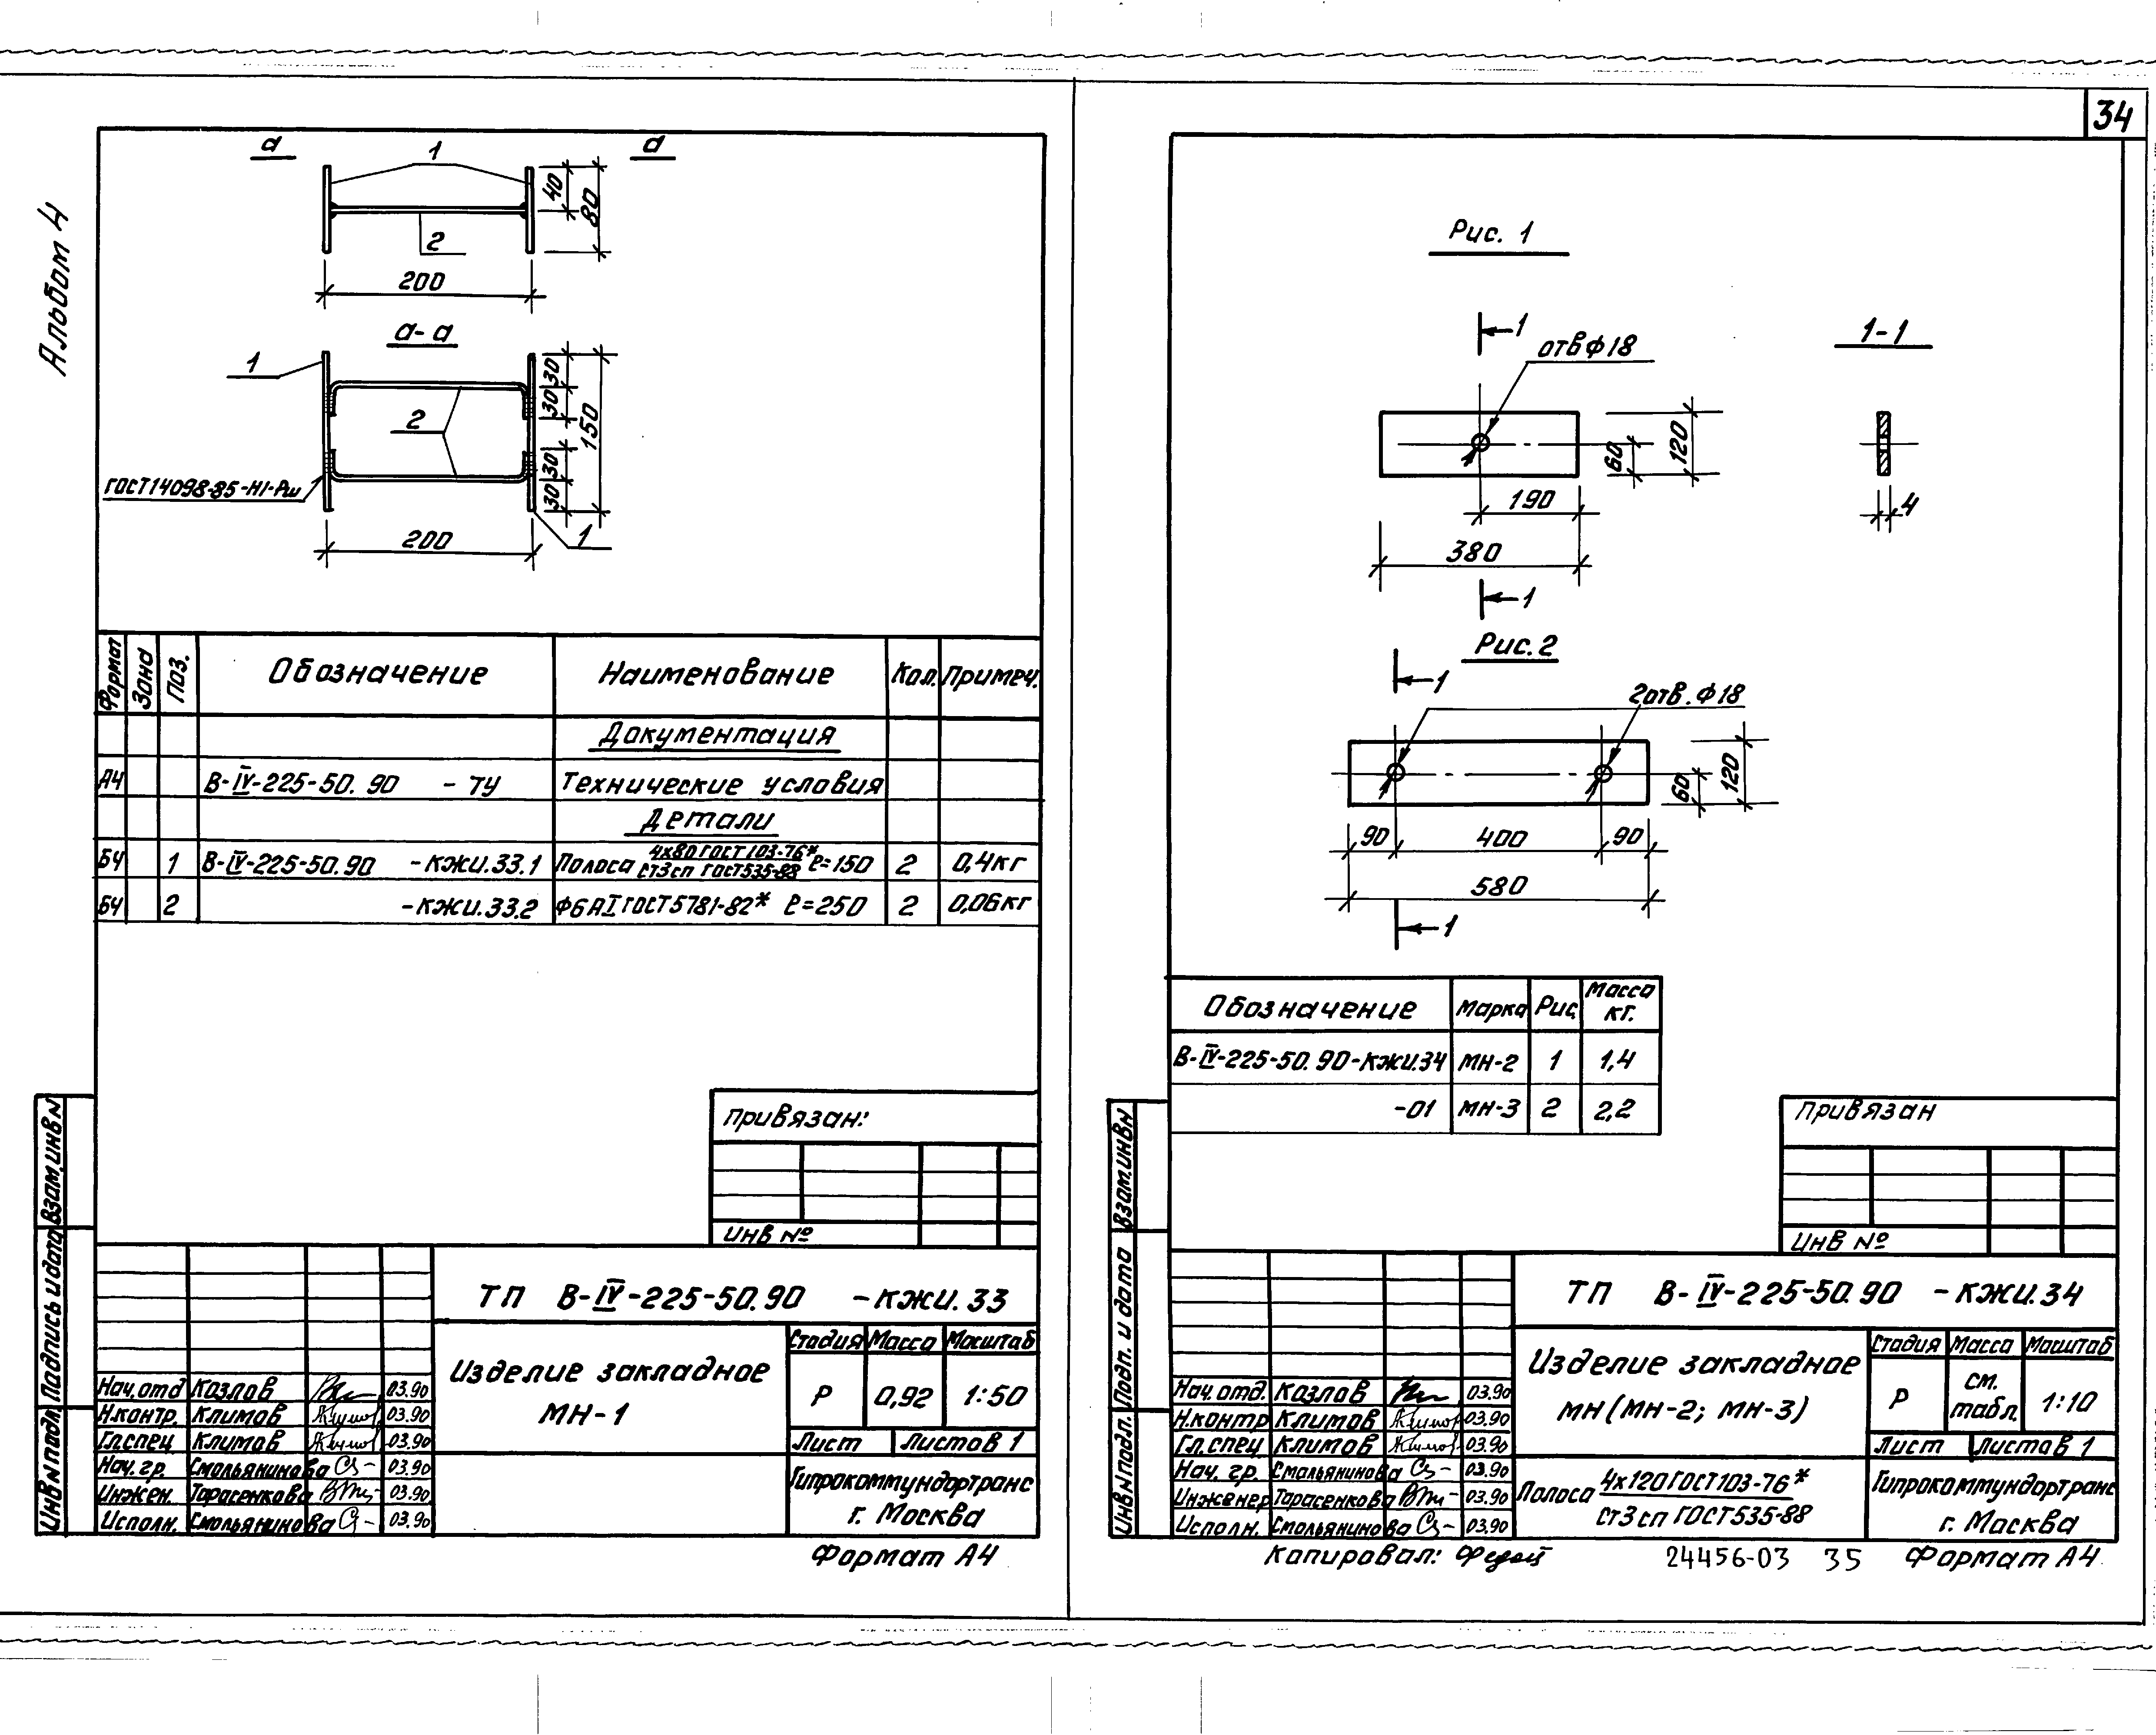 34
Альбом 4
а а
1
40
80
2
200
а-а
1
30
30
2
150
30
30
ГОСТ14098-85-Н1-Рш
200
1
Формат Зона Поз. Обозначение Наименование Кол. Примеч.
Документация
А4 В-IV-225-50.90 -ТУ Технические условия
Детали
БЧ 1 В-IV-225-50.90 -КЖИ.33.1 Полоса 4х80 ГОСТ 103-76* Ст3сп ГОСТ535-88 ℓ=150 2 0,4кг
БЧ 2 -КЖИ.33.2 Ф6АI ГОСТ5781-82* ℓ=250 2 0,06кг
Привязан:
Инв №
Взам.инв№
Подпись и дата
Инв№подл.
ТП В-IV-225-50.90 -КЖИ.33
Изделие закладное
МН-1
Стадия Масса Масштаб
Р 0,92 1:50
Лист Листов 1
Гипрокоммундортранс
г. Москва
Нач.отд Козлов 03.90
Н.контр. Климов 03.90
Гл.спец Климов 03.90
Нач.гр. Смольянинова 03.90
Инжен. Тарасенкова 03.90
Исполн. Смольянинова 03.90
Формат А4
Рис. 1
1
отв ф18
1-1
120
60
190
4
380
1
Рис. 2
1
2отв. ф18
120
60
90 400 90
580
1
Обозначение Марка Рис. Масса кг.
В-IV-225-50.90-КЖИ.34 МН-2 1 1,4
-01 МН-3 2 2,2
Привязан
Инв №
Взам.инв№
Подп. и дата
Инв№подл.
ТП В-IV-225-50.90 -КЖИ.34
Изделие закладное
МН(МН-2; МН-3)
Стадия Масса Масштаб
Р см. табл. 1:10
Лист Листов 1
Полоса 4х120ГОСТ103-76*
Ст3сп ГОСТ535-88
Гипрокоммундортранс
г. Москва
Нач.отд. Козлов 03.90
Н.контр Климов 03.90
Гл.спец Климов 03.90
Нач. гр. Смольянинова 03.90
Инженер Тарасенкова 03.90
Исполн. Смольянинова 03.90
Копировал: 24456-03 35 Формат А4